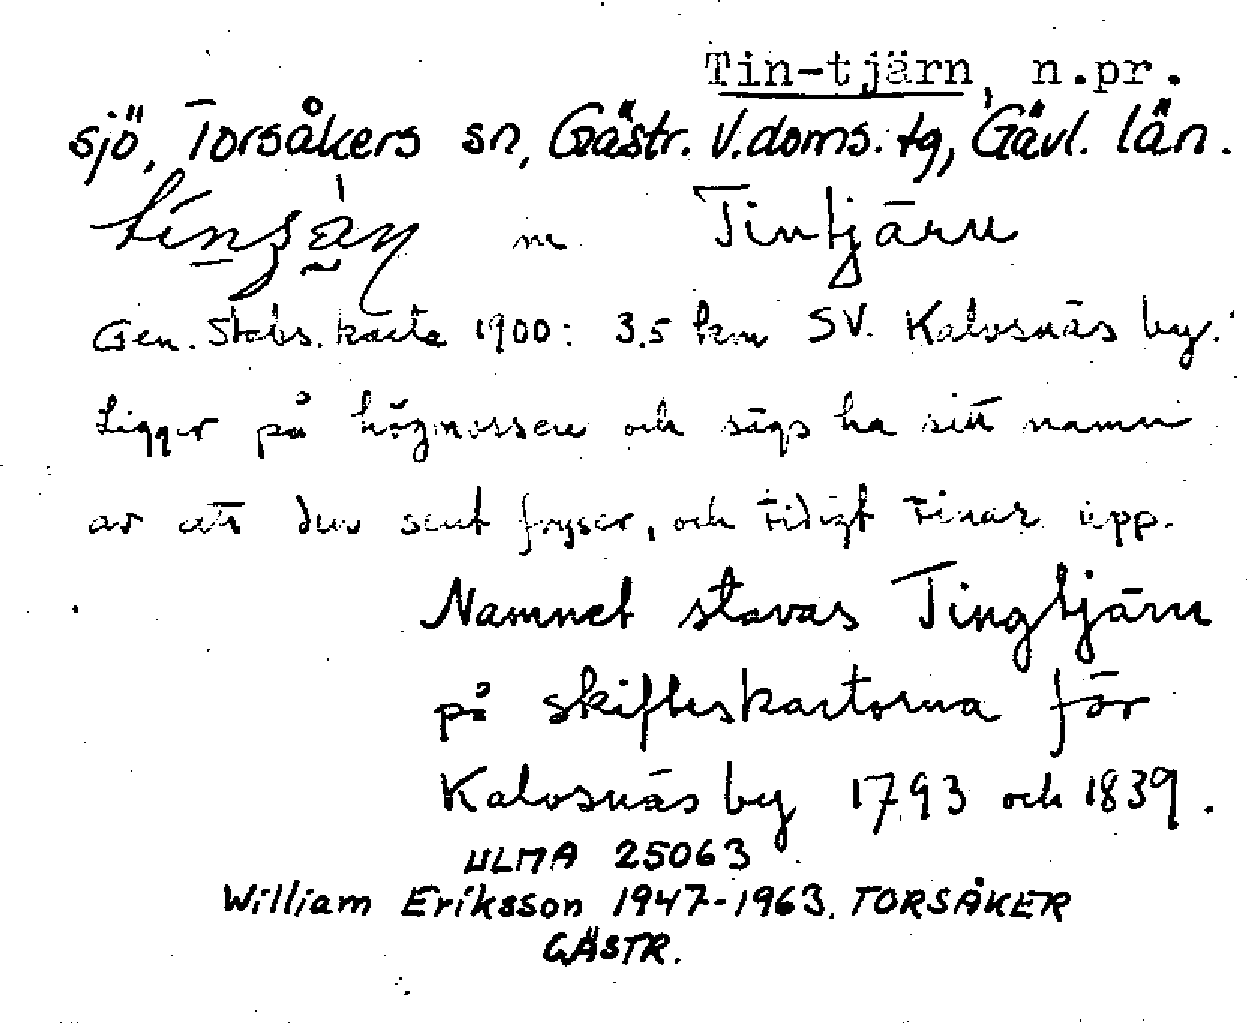 Tin-tjärn, n.pr.
sjö, Torsåkers sn, Gästr. V. doms. tg, Gävl. län.
m. Tintjärn
Gen. Stabs. karta 1900: 3.5 km SV. Kalvsnäs by.
Ligger på högmossen och sägs ha sitt namn
av att den sent fryser, och tidigt tinar upp.
Namnet stavas Tingtjärn
på skifteskartorna för
Kalvsnäs by 1793 och 1839.
ULMA 25063
William Eriksson 1947-1963. TORSÅKER
GÄSTR.